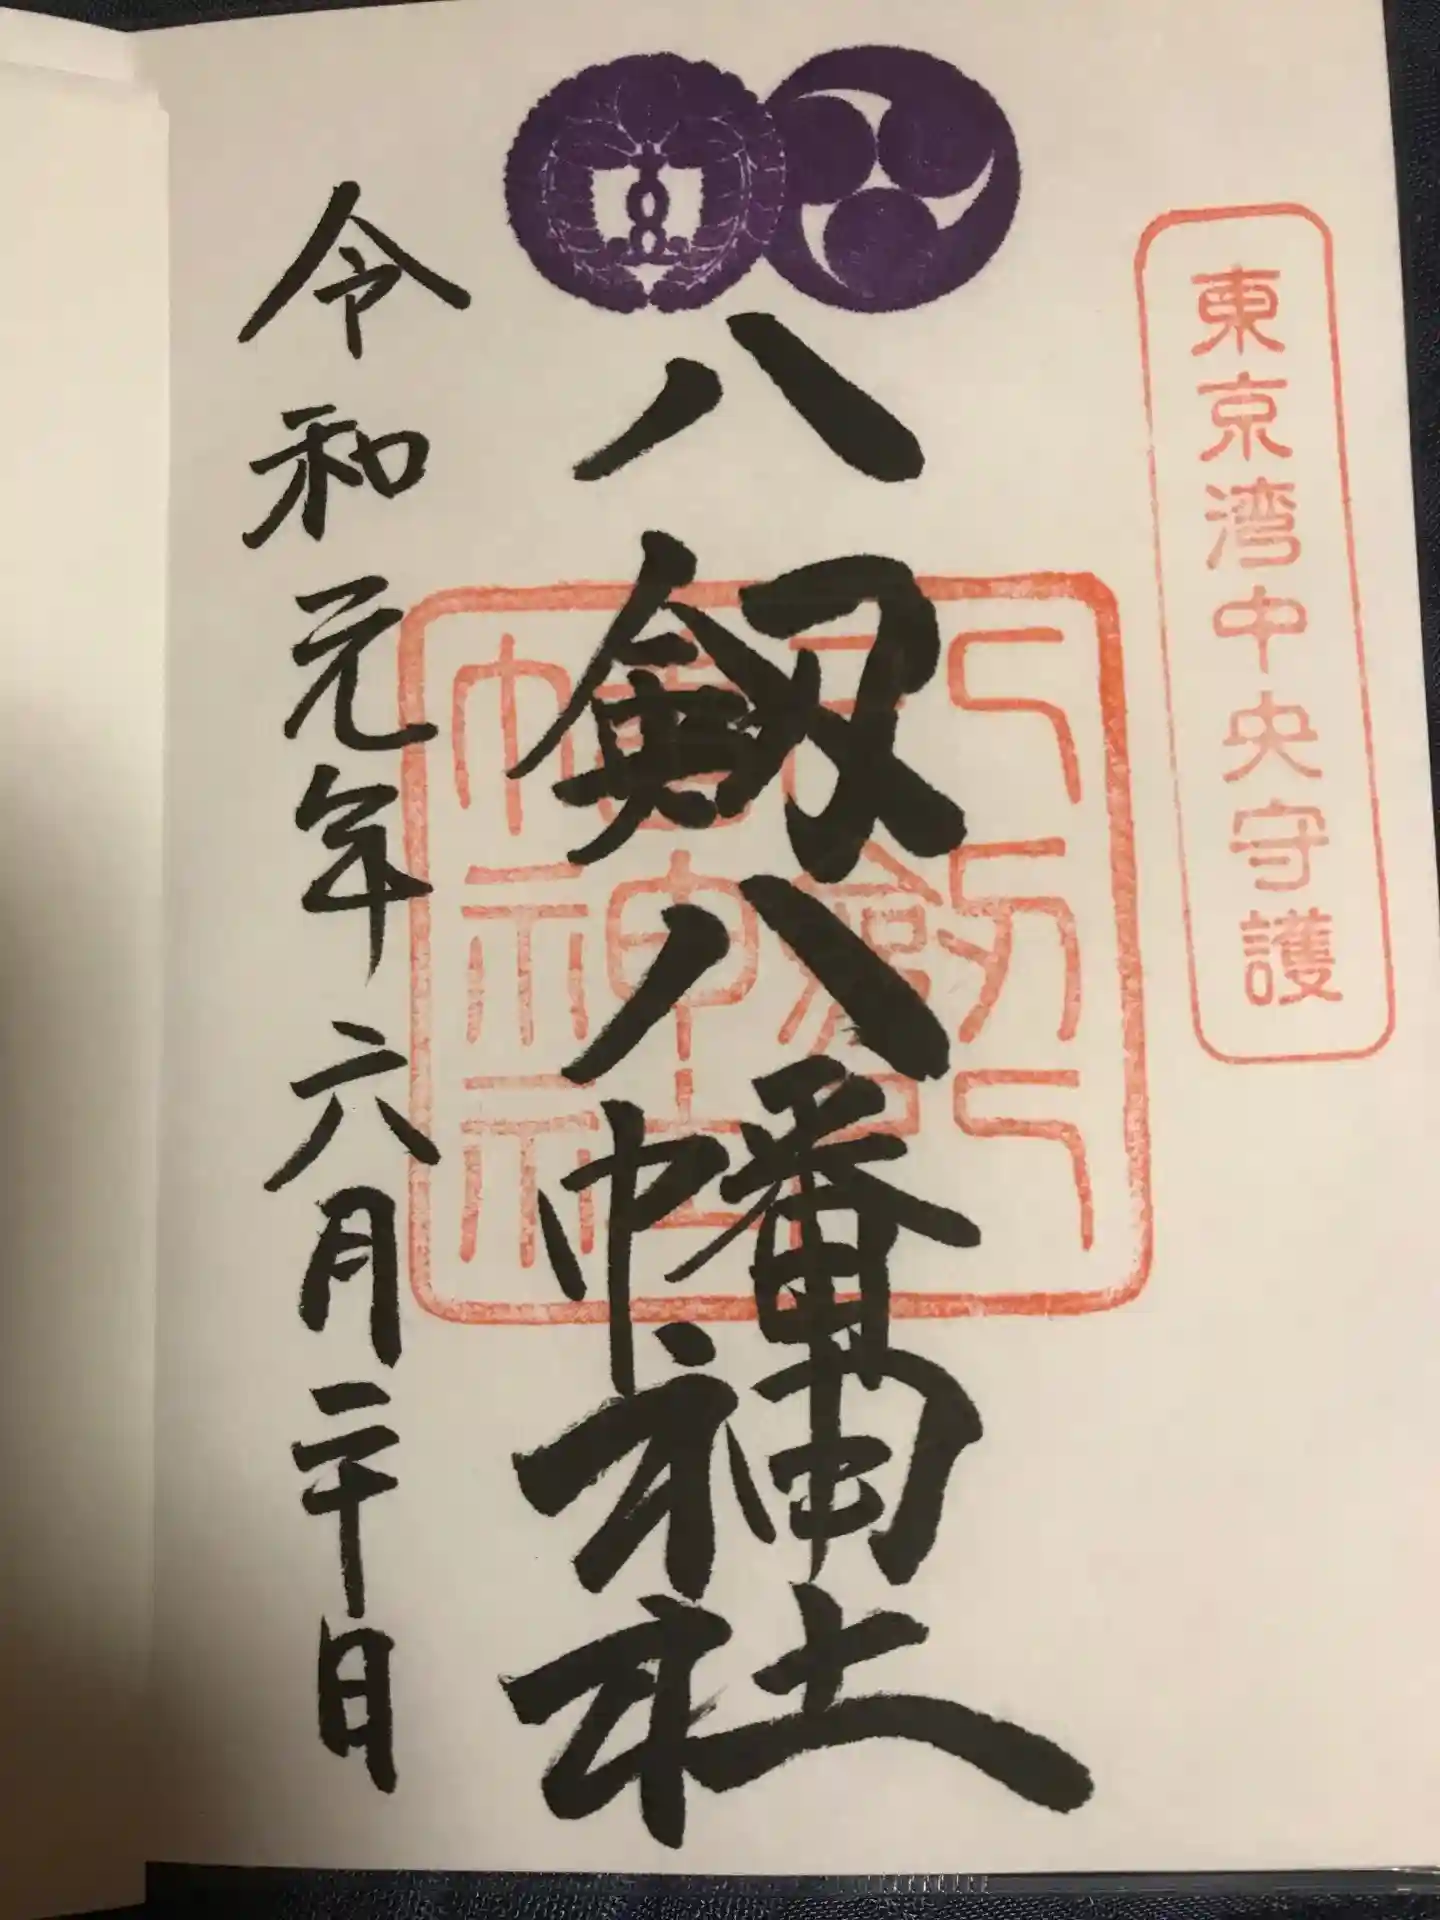 東京湾中央守護
八剱八幡神社
八剱八幡神社
令和元年六月二十日